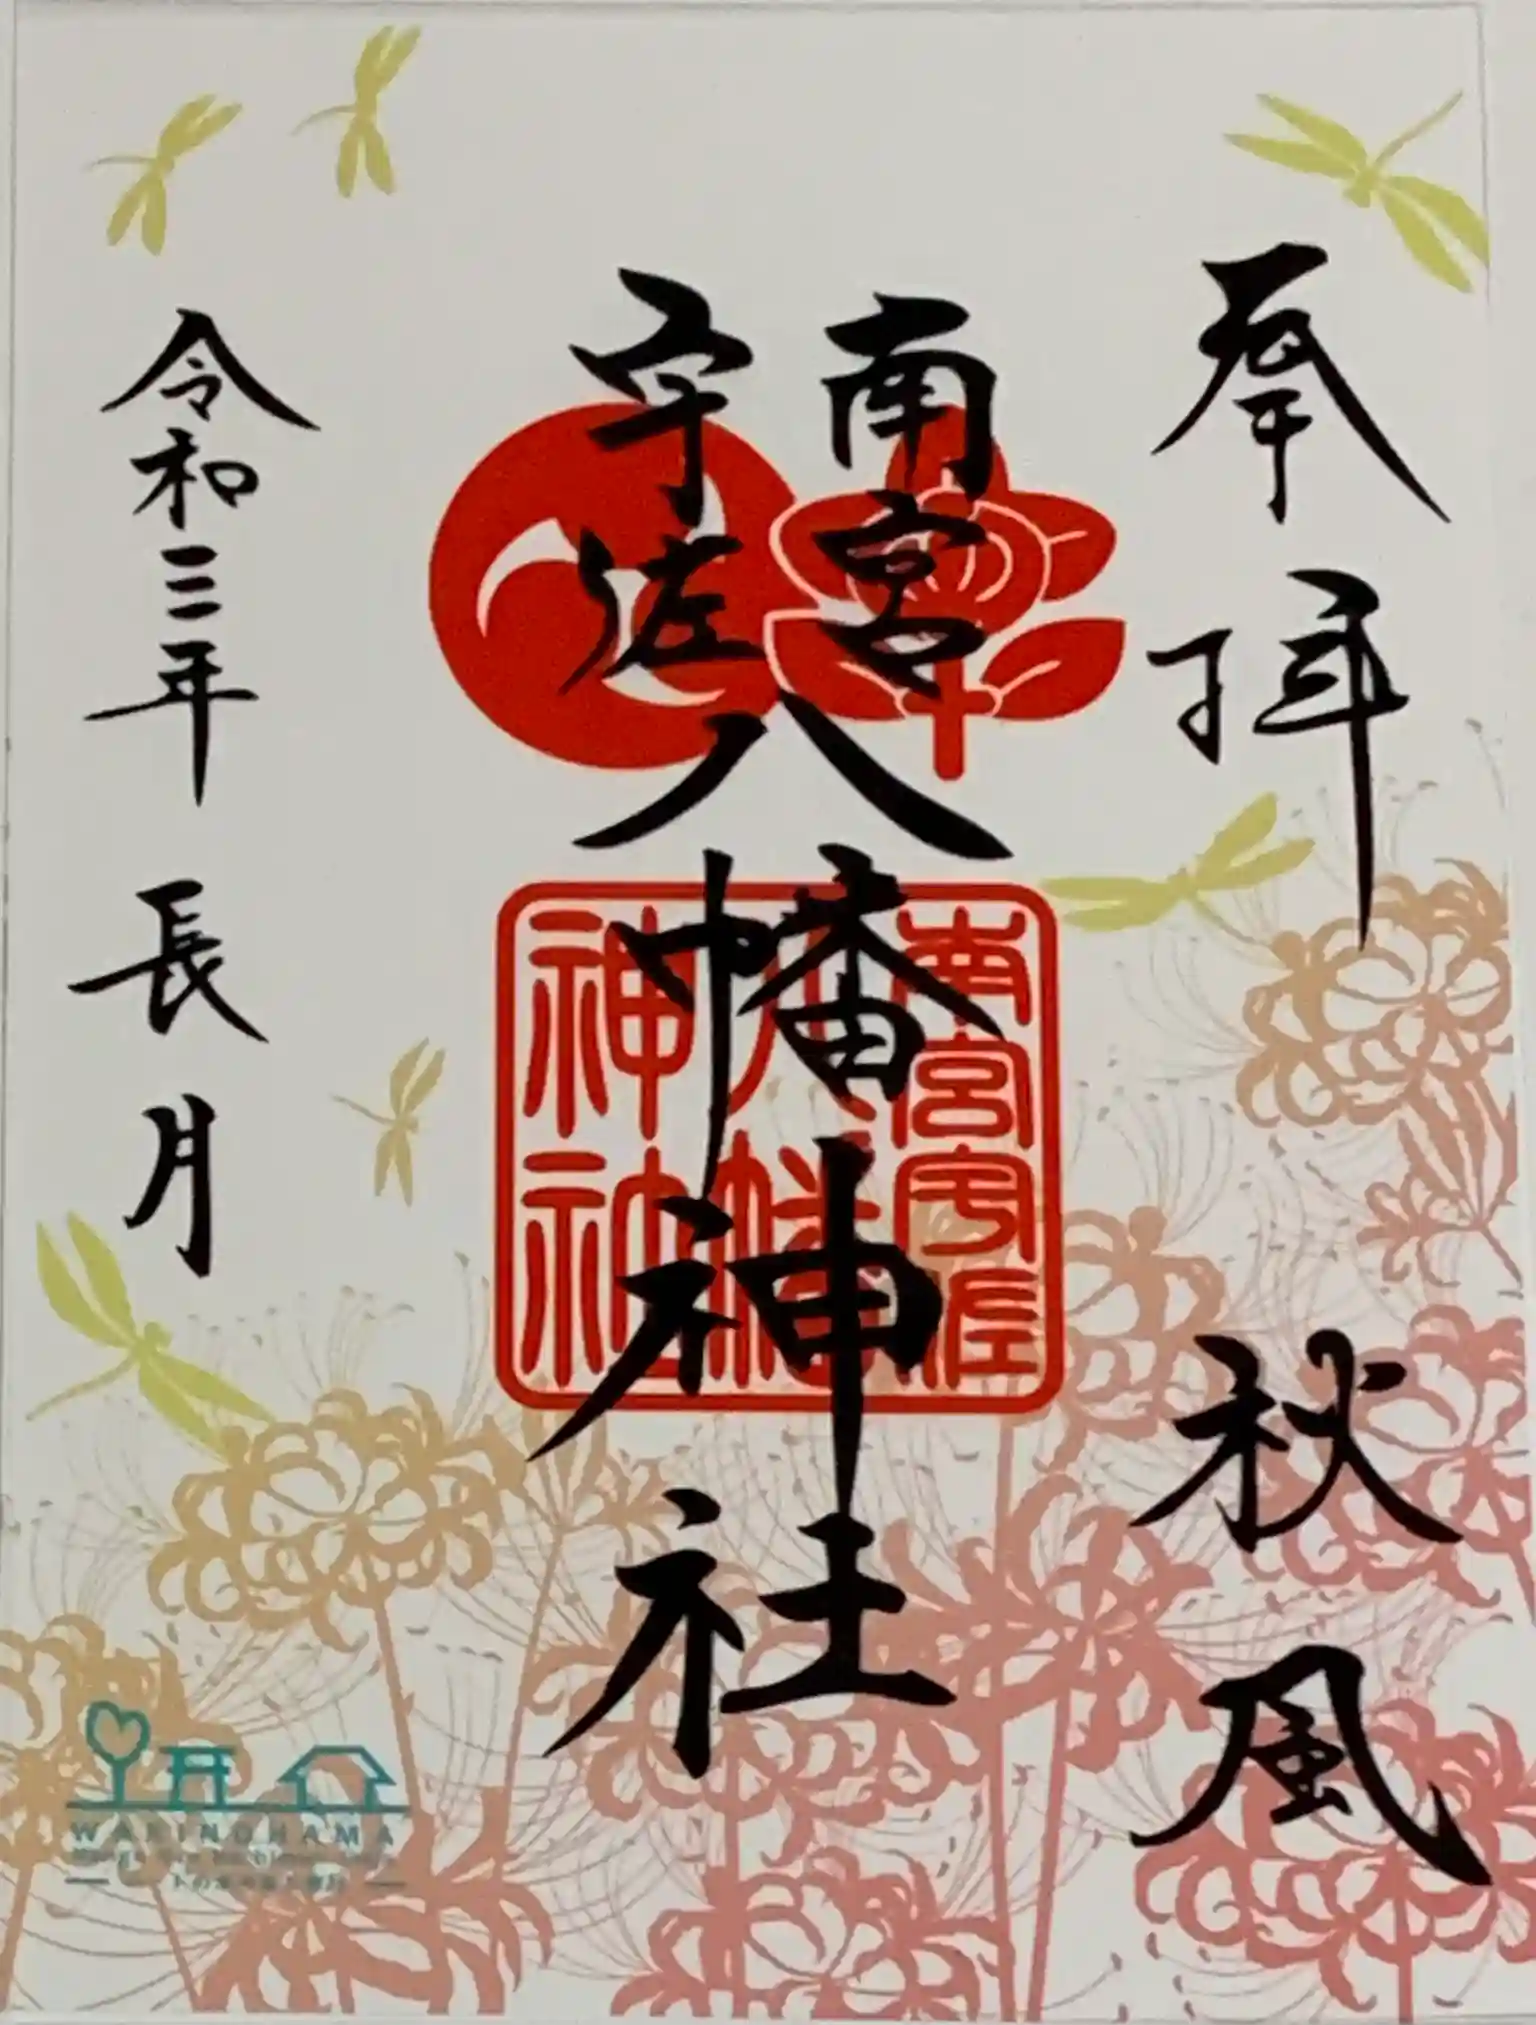 奉拝
秋風
南宮
宇佐
八幡神社
南宮宇佐
八幡
神社
令和三年
長月
WAKINOHAMA